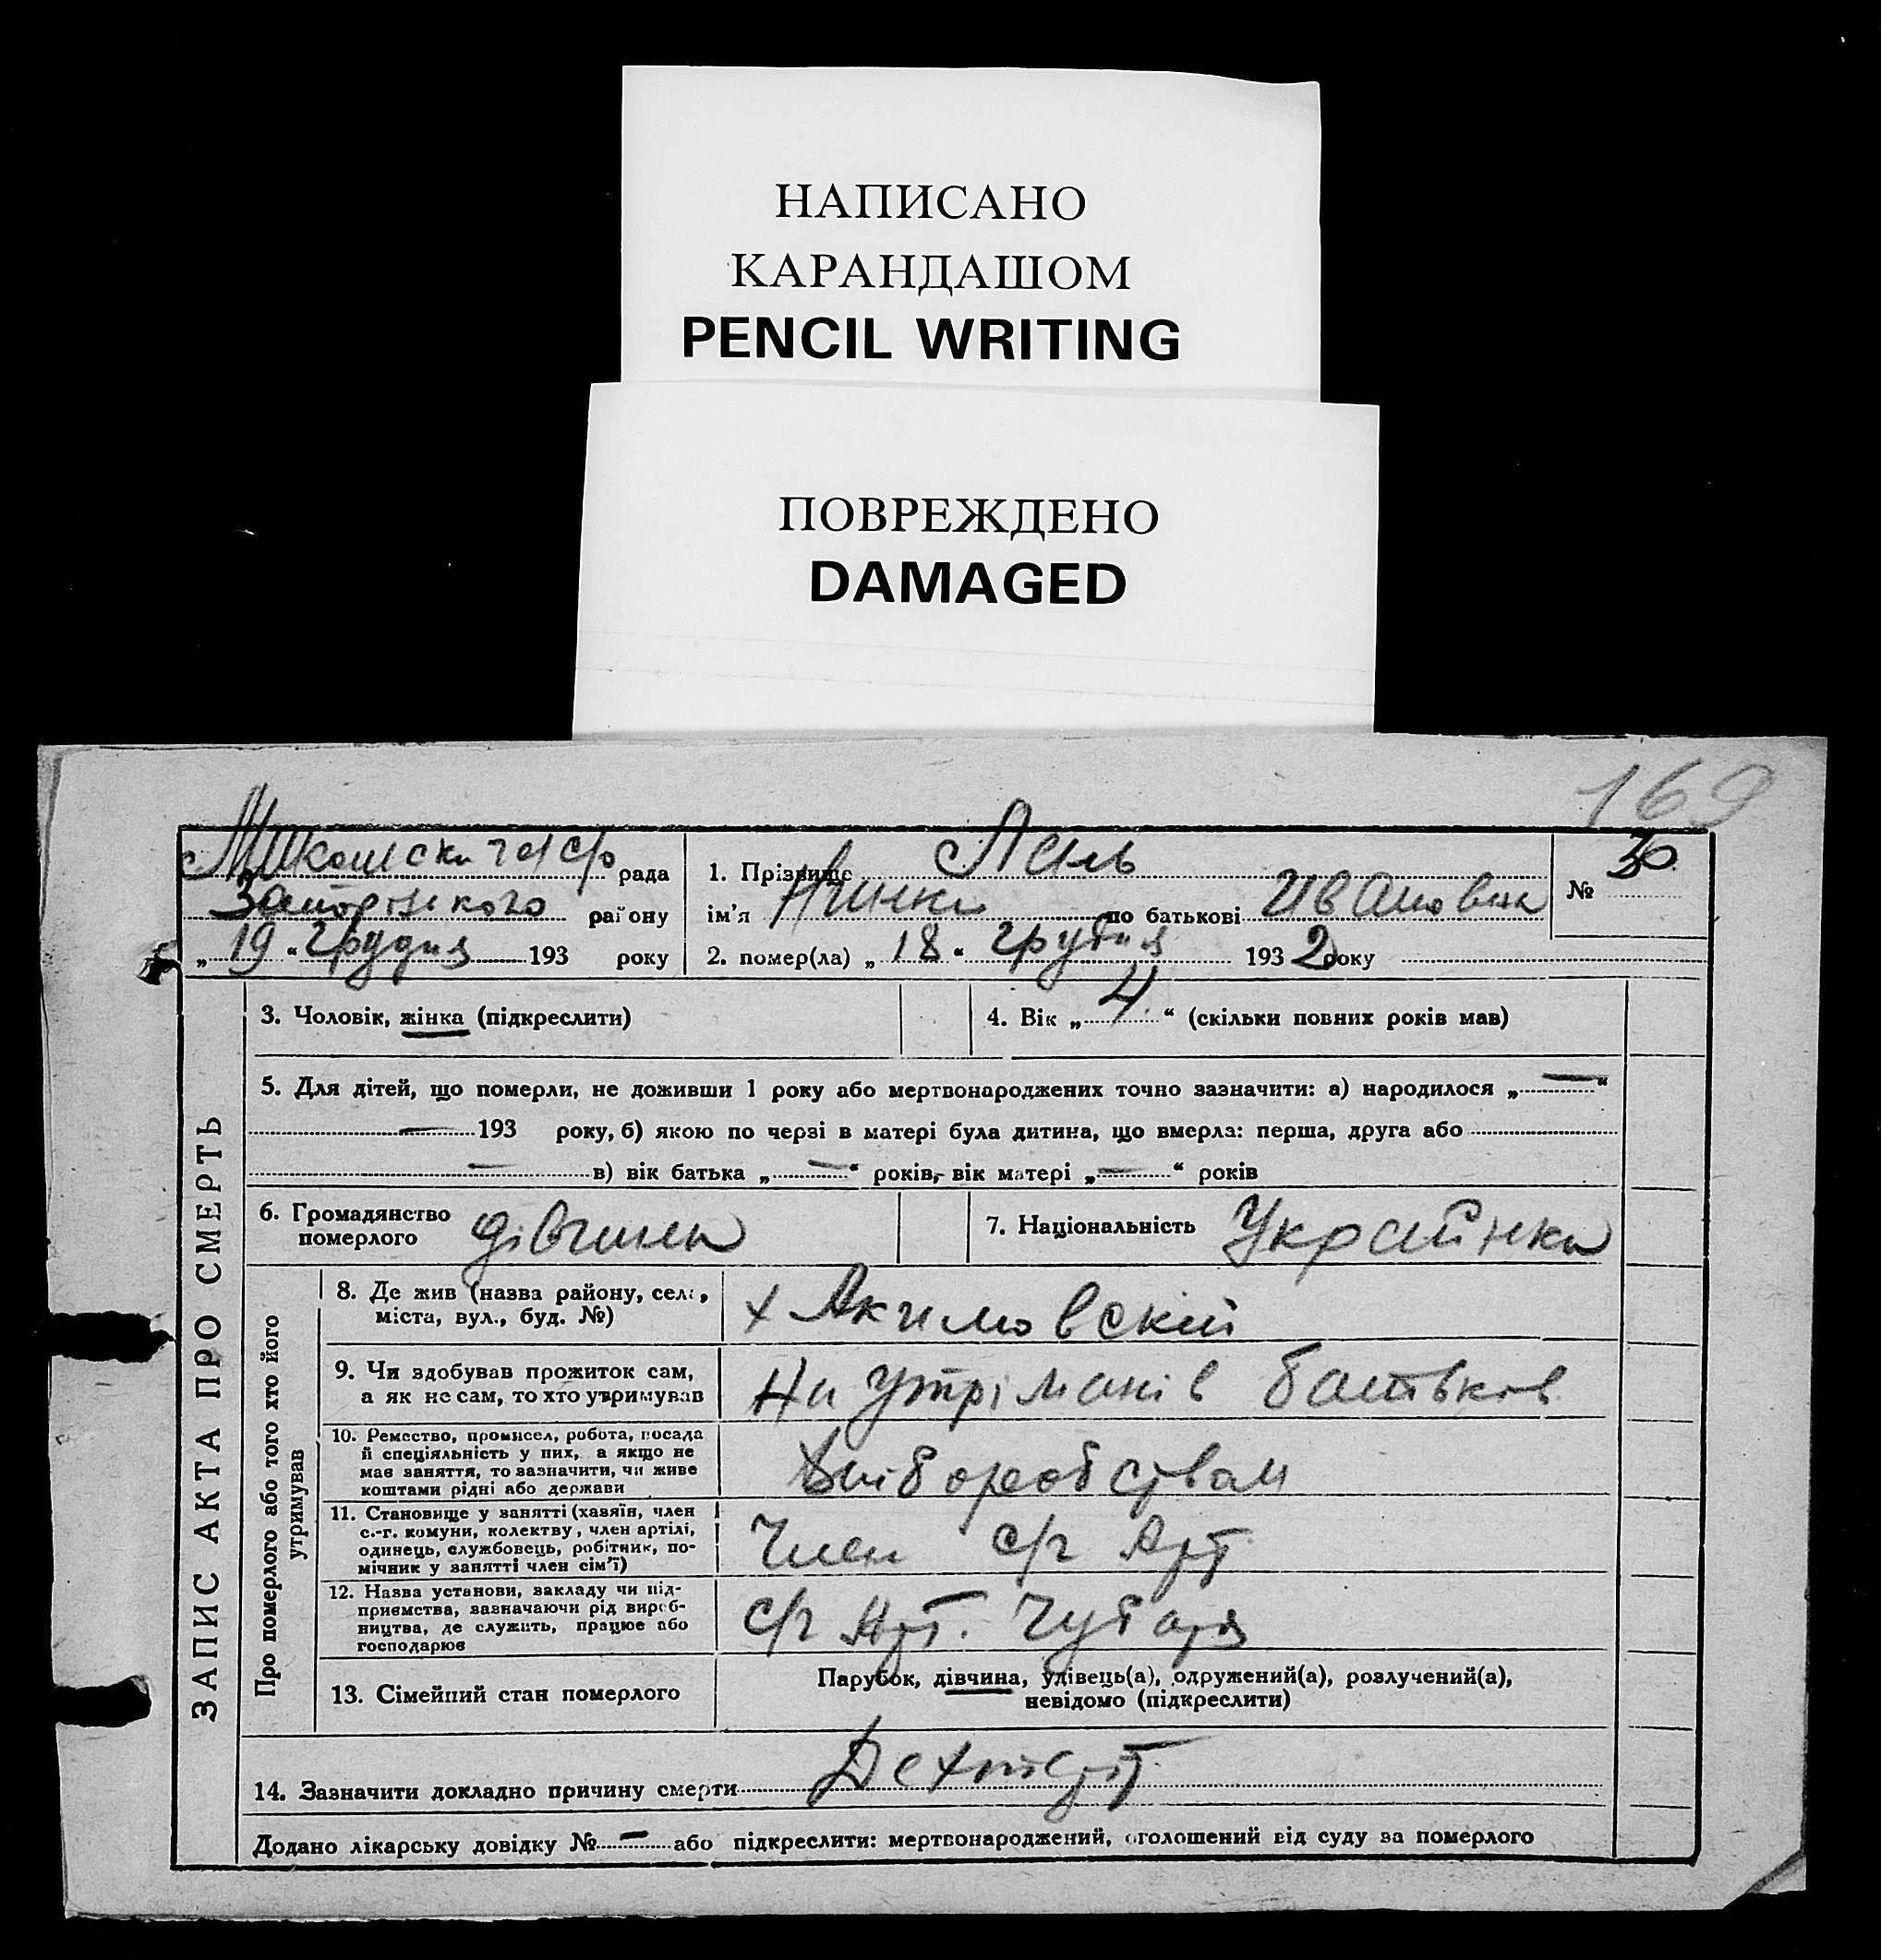 НАПИСАНО
КАРАНДАШОМ
PENCIL WRITING
ПОВРЕЖДЕНО
DAMAGED
169
рада
району
„ 19 “ грудня 193 року
1. Прізвище
ім’я по батькові Ивановна
2. помер(ла) „ 18 “ грудня 1932 року
№ 30
ЗАПИС АКТА ПРО СМЕРТЬ
3. Чоловік, жінка (підкреслити)
4. Вік „ 4 “ (скільки повних років мав)
5. Для дітей, що померли, не доживши 1 року або мертвонароджених точно зазначити: а) народилося „ — “
— 193 року, б) якою по черзі в матері була дитина, що вмерла: перша, друга або
— в) вік батька „ — “ років, вік матері „ — “ років
6. Громадянство
померлого
дівчина
7. Національність Украйінка
Про померлого або того хто його
утримував
8. Де жив (назва району, села,
міста, вул., буд. №)
х Акимовский
9. Чи здобував прожиток сам,
а як не сам, то хто утримував
На утріманів батьков
10. Ремество, промисел, робота, посада
й спеціяльність у них, а якщо не
має заняття, то зазначити, чи живе
коштами рідні або держави
11. Становище у занятті (хазяїн, член
с.-г. комуни, колективу, член артілі,
одинець, службовець, робітник, по-
мічник у занятті член сім’ї)
Член с/г Арт
12. Назва установи, закладу чи під-
приємства, зазначаючи рід вироб-
ництва, де служить, працює або
господарює
с/г Арт. Чубаря
13. Сімейний стан померлого
Парубок, дівчина, удівець(а), одружений(а), розлучений(а),
невідомо (підкреслити)
14. Зазначити докладно причину смерти
Додано лікарську довідку № — або підкреслити: мертвонароджений, оголошений від суду за померлого